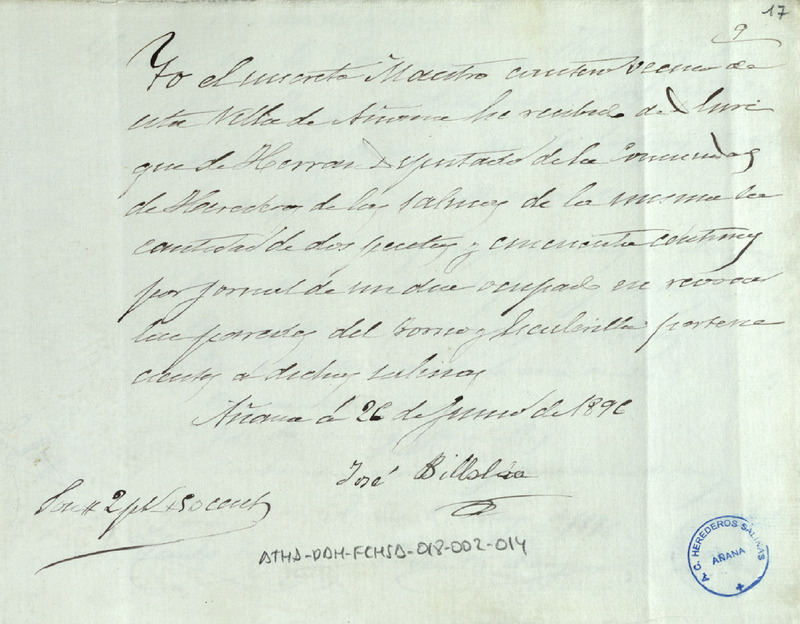 17
9
Yo el inscrito Maestro cantero vecino de
esta Villa de Añana he recibido de Enri
que de Herran Diputado de la Comunidad
de Herederos de las salinas de la misma la
cantidad de dos pesetas y cincuenta centimos
por jornal de un dia ocupado en revocar
las paredes del torno y pertene
cientes a dichas salinas
Añana á 26 de Junio de 1896
José
Son # 2 pts 50 cents
ATHA-DAH-FCHSA-018-002-014
A.C. HEREDEROS SALINAS
AÑANA